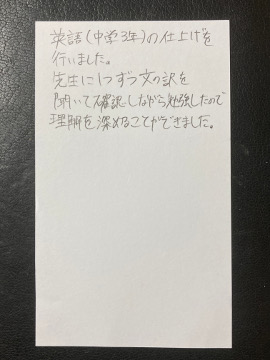 英語(中学3年)の仕上げを
行いました。
先生に1つずつ文の訳を
聞いて確認しながら勉強したので
理解を深めることができました。